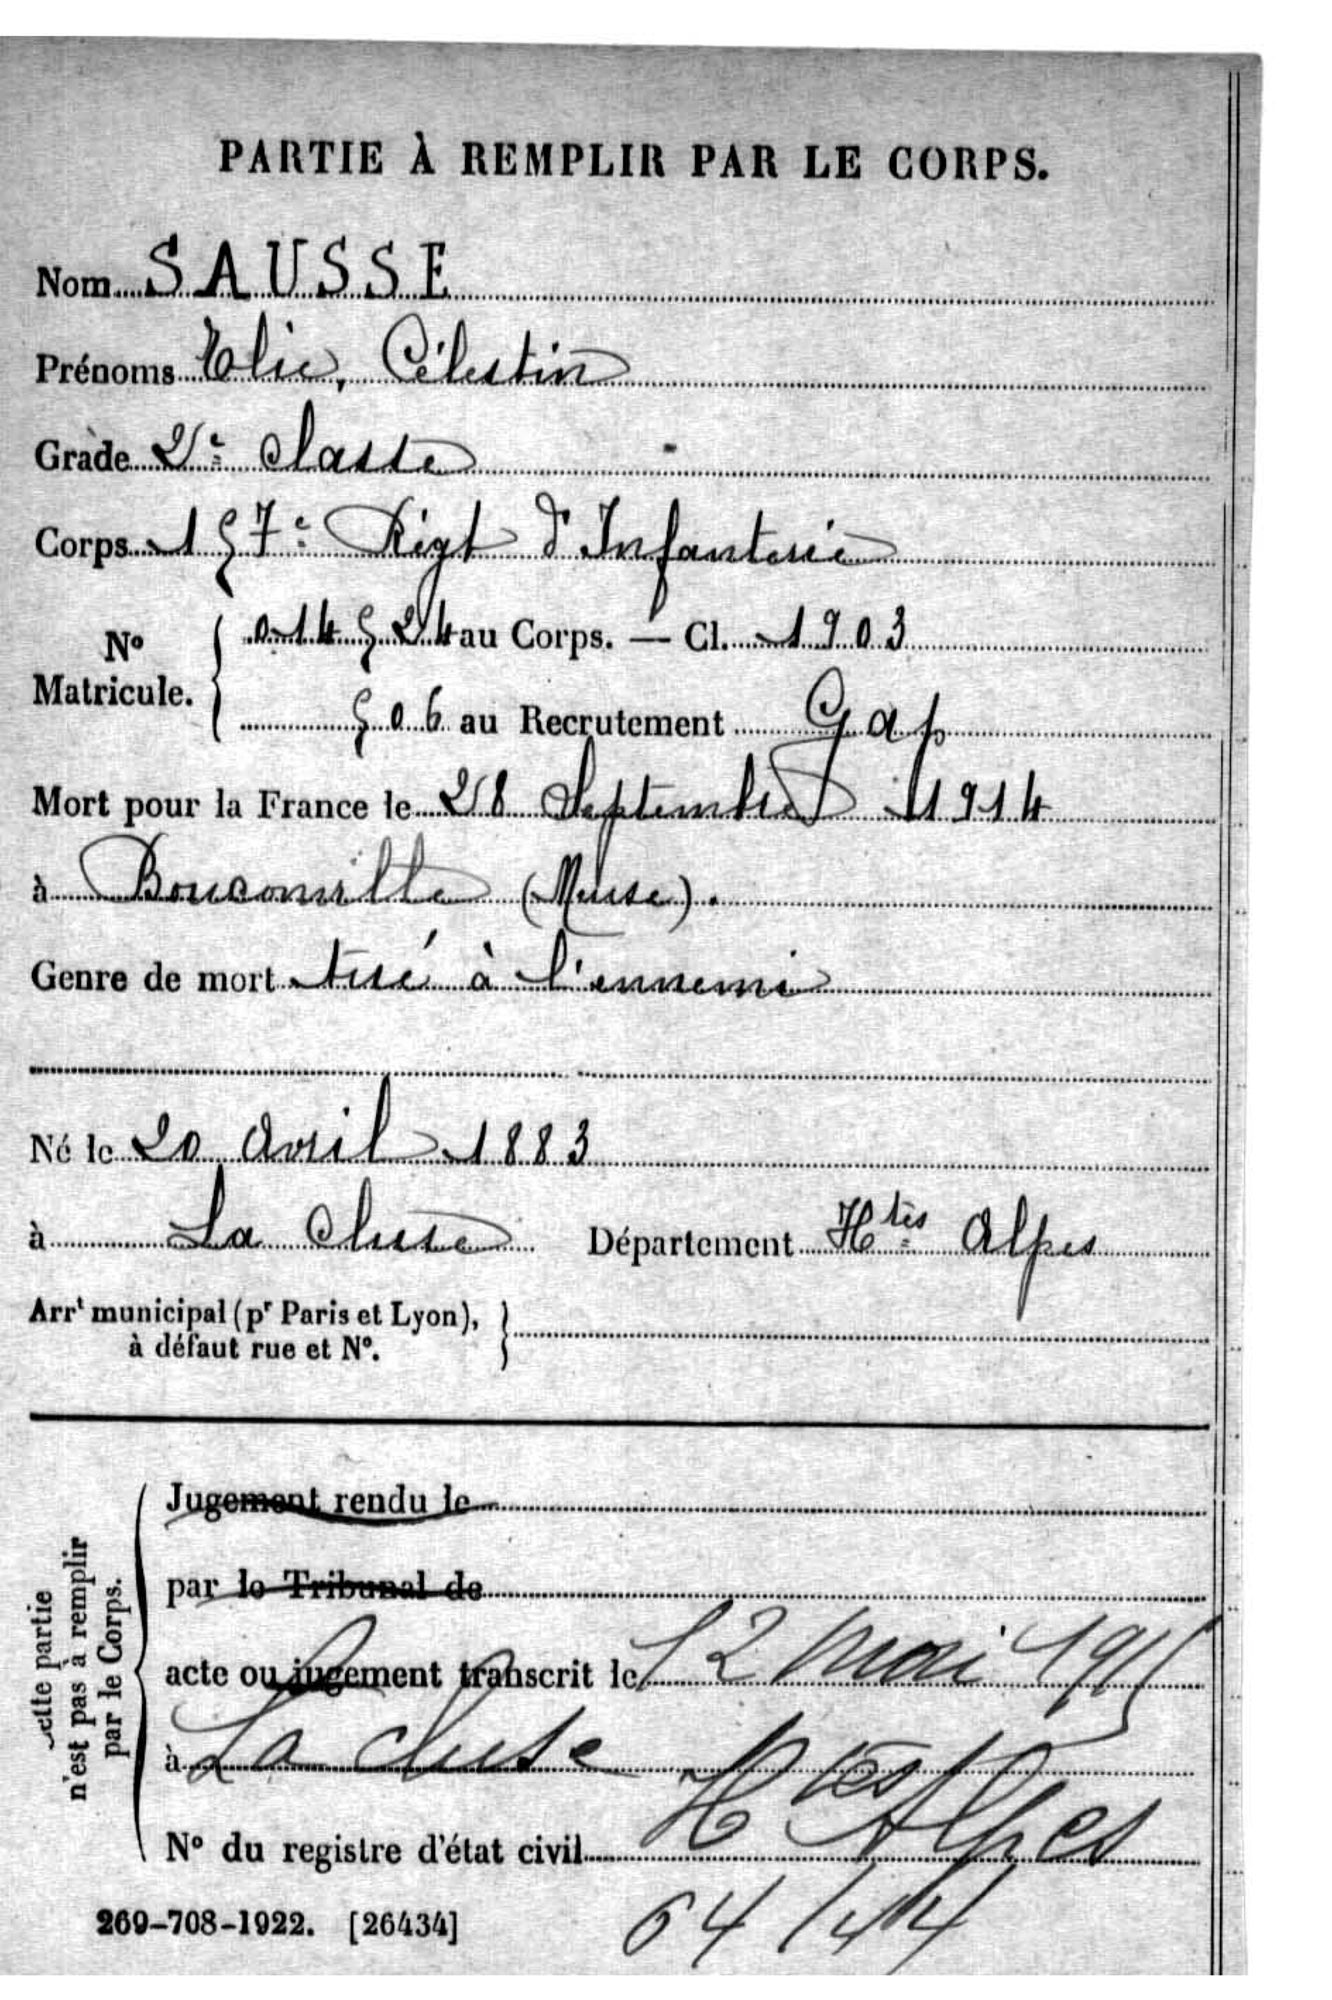 PARTIE À REMPLIR PAR LE CORPS.
Nom SAUSSE
Prénoms Elie, Célestin
Grade 2e classe
Corps 157e Régt d'Infanterie
No Matricule. 014524 au Corps. — Cl. 1903
506 au Recrutement Gap
Mort pour la France le 28 Septembre 1914
à Bouconville (Meuse).
Genre de mort tué à l'ennemi
Né le 20 Avril 1883
à La Cluse Département Htes Alpes
Arrt municipal (pr Paris et Lyon),
à défaut rue et No.
Cette partie
n'est pas à remplir
par le Corps.
Jugement rendu le
par le Tribunal de
acte ou jugement transcrit le 12 mai 1915
à La Cluse Htes Alpes
No du registre d'état civil
269-708-1922. [26434]